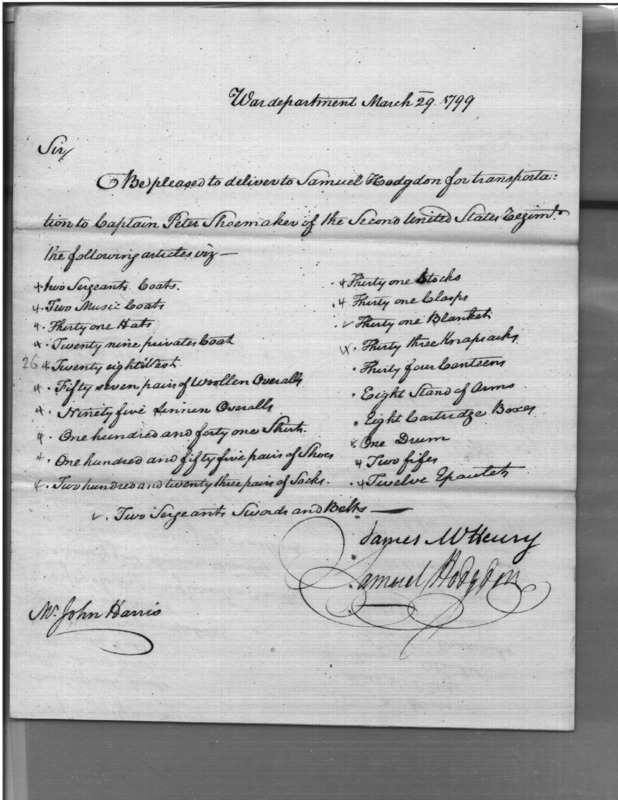 War department March 29. 1799
Sir
Be pleased to deliver to Samuel Hodgdon for transporta:
tion to Captain Peter Shoemaker of the Second United States Regim.t
the following articles viz—
two Sergeants Coats.
Two Music Coats
Thirty one Hats
Twenty nine privates Coat
26 Twenty eight Vest
Fifty seven pairs of Woollen Overalls
Ninety five Linnen Overalls
One hundred and forty one Shirts
One hundred and fifty five pairs of Shoes
Two hundred and twenty three pairs of Socks.
Thirty one Stocks
Thirty one Clasps
Thirty one Blankets
Thirty three Knapsacks.
Thirty four Canteens
Eight Stand of Arms
Eight Cartridge Boxes
One Drum
Two fifes
Twelve Epaulets
Two Sergeants Swords and Belts —
James McHenry
Samuel Hodgdon
Mr. John Harris